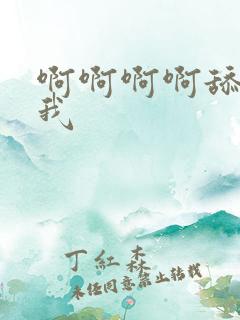 啊啊啊啊舔
我
丁红森
未经同意禁止转载